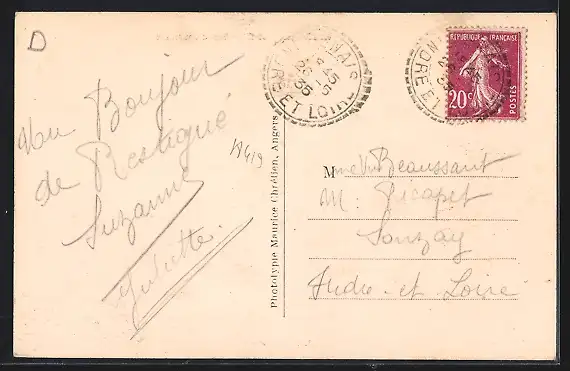 D
Un Bonjour
de Restigné
Suzanne
Juliette
A419
Phototypie Maurice Chrétien, Angers
ET LOIRE
RÉPUBLIQUE FRANÇAISE
20c
POSTES
Mme Vve Beaussant
M. Picapet
Souzay
Indre-et-Loire